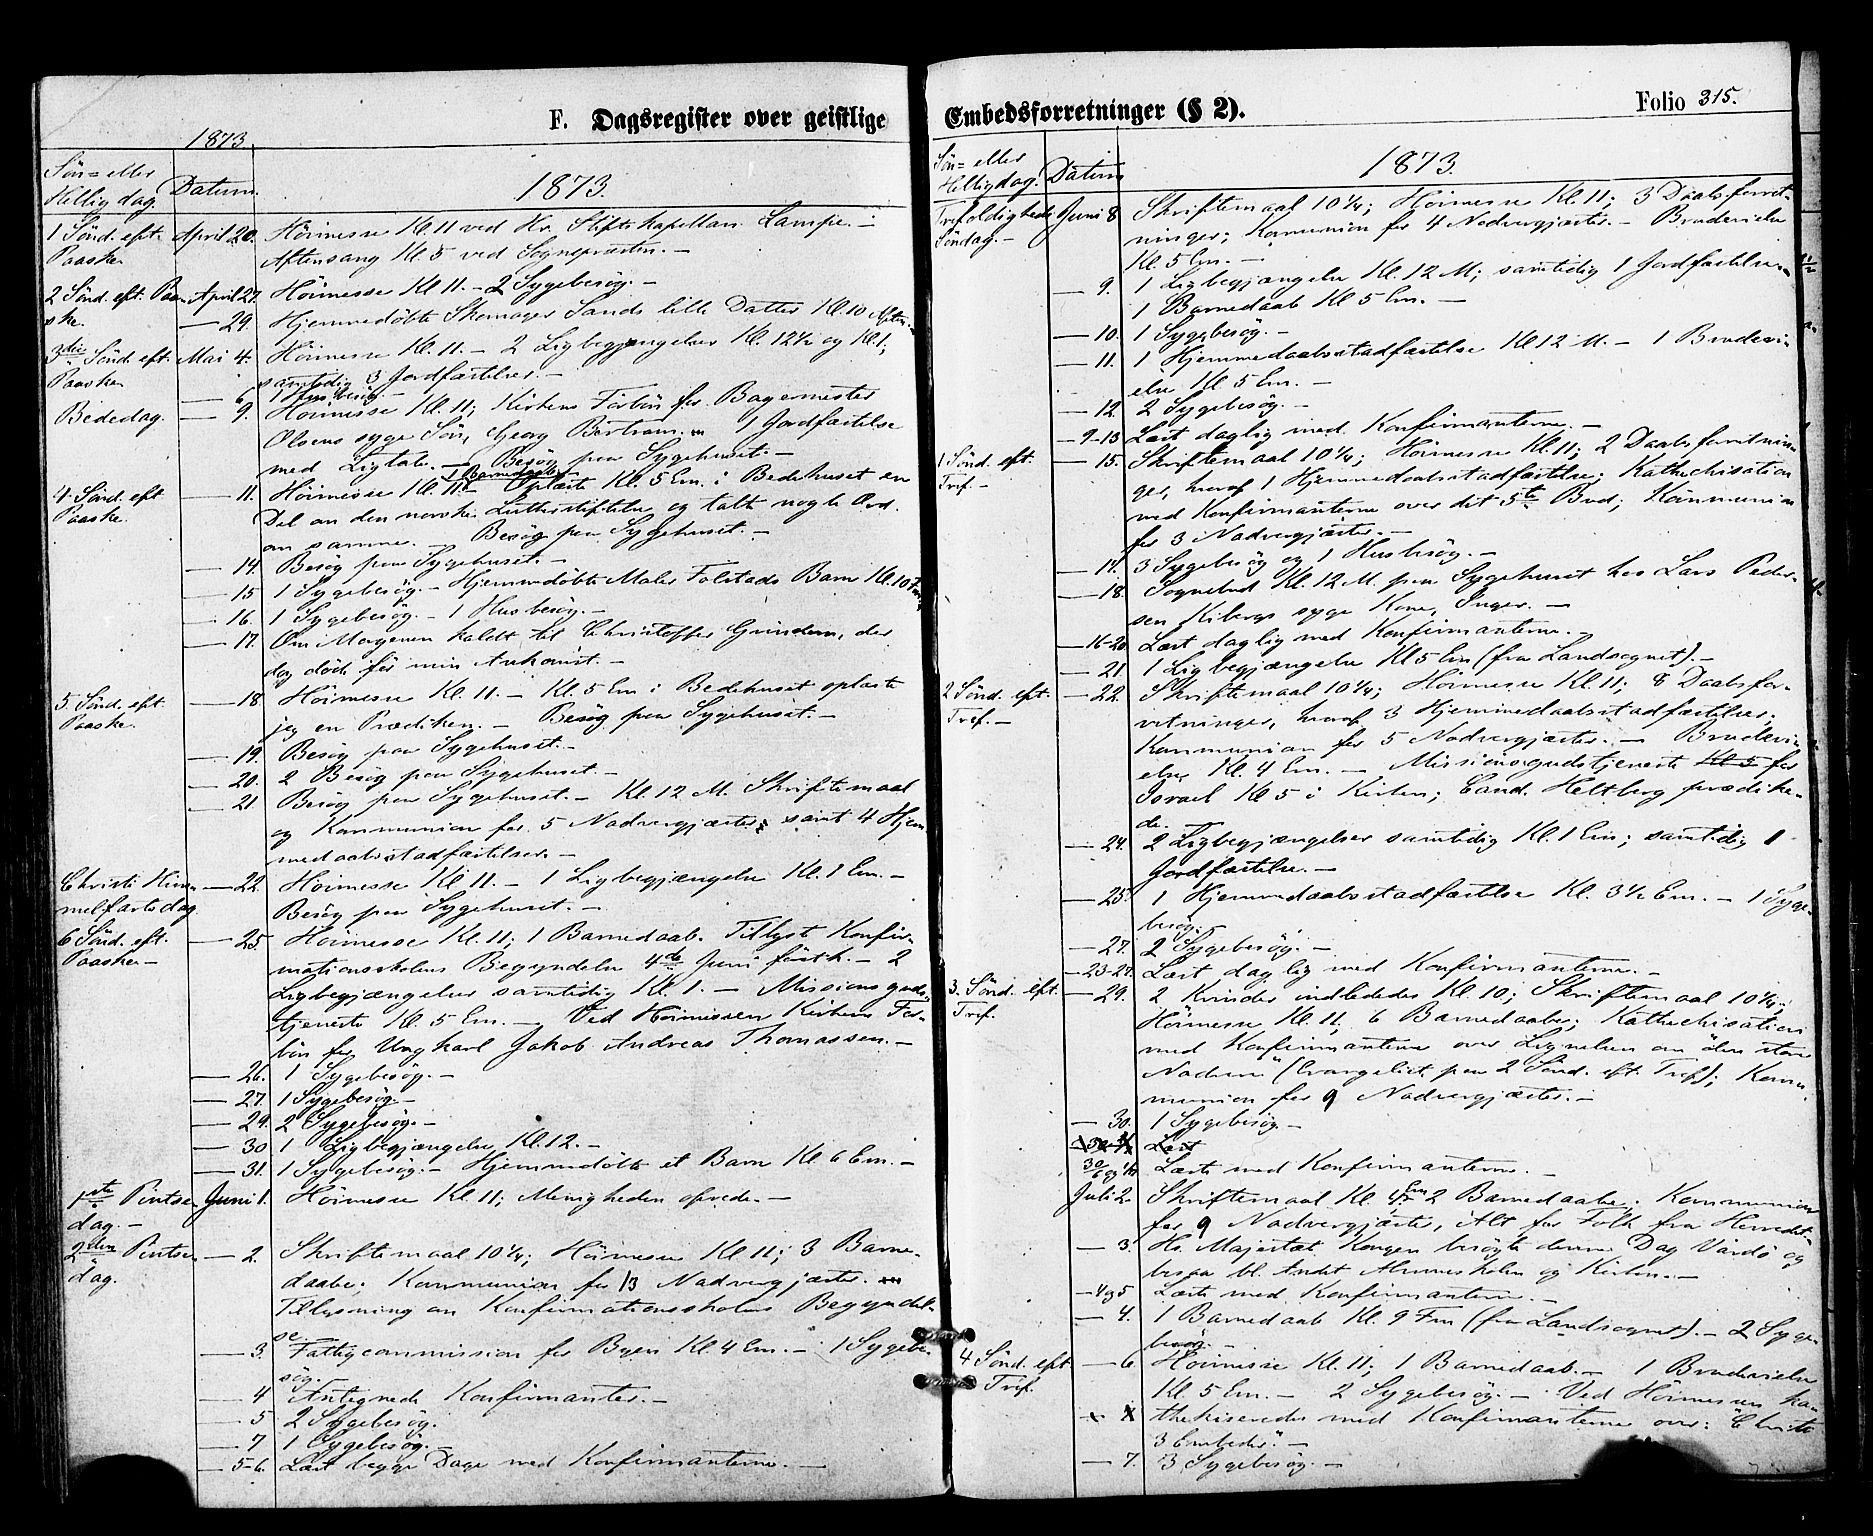 F. Dagsregister over geistlige
1873.
Søn= eller
Hellig dag.
Datum.
1873.
1 Sönd. eft. Paaske
April 20.
Höimesse Kl. 11 ved Hr. Stiftskapellan Lampe. –
Aftensang Kl. 5 ved Sognepræsten. –
2 Sönd. eft. Paaske.
April 27.
Höimesse Kl. 11. – 2 Sygebesög. –
— 29.
Hjemmedöbte Skomager Sands lille Datter Kl. 10 Aften. –
3die Sönd. eft. Paaske
Mai 4.
Höimesse Kl. 11. – 2 Ligbegjængelser Kl. 12½ og Kl. 1;
samtidig 3 Jordfæstelser. –
— 6.
1 Husbesög. –
Bededag.
— 9.
Höimesse Kl. 11; Kirkens Forbön for Bagermester
Olsens syge Sön, Georg Bertram. 1 Jordfæstelse
med Ligtale. – Besög paa Sygehuset. –
4 Sönd. eft. Paaske.
— 11.
Höimesse Kl. 11. 1 Barnedaab. Oplæste Kl. 5 Em. i Bedehuset en
Del om den norske Lutherstiftelse og talte nogle Ord
om samme. – Besög paa Sygehuset. –
— 14.
Besög paa Sygehuset. –
— 15
1 Sygebesög. – Hjemmedöbte Maler Folstads Barn Kl. 10 Fm.
— 16.
1 Sygebesög. – 1 Husbesög. –
— 17.
Om Morgenen kaldt til Christoffer Grindem, der
dog döde för min Ankomst. –
5. Sönd. eft. Paaske.
— 18
Höimesse Kl. 11. – Kl. 5 Em i Bedehuset oplæste
jeg en Prædiken. – Besög paa Sygehuset. –
— 19.
Besög paa Sygehuset. –
— 20.
2 Besög paa Sygehuset. –
— 21.
Besög paa Sygehuset. – Kl. 12 M. Skriftemaal
og Kommunion for 5 Nadvergjæster; samt 4 Hjem-
medaabsstadfæstelser. –
Christi Him-
melfartsdag
— 22.
Höimesse Kl. 11. – 1 Ligbegjængelse Kl. 1 Em. –
Besög paa Sygehuset. –
6 Sönd. eft. Paaske –
— 25.
Höimesse Kl. 11; 1 Barnedaab. Tillyst Konfir-
mationsskolens Begyndelse 4de Juni förstk. – 2
Ligbegjængelser samtidig Kl. 1. – Missionsguds-
tjeneste Kl. 5 Em. – Ved Höimessen Kirkens For-
bön for Ungkarl Jakob Andreas Thomassen. –
— 26.
1 Sygebesög. –
— 27.
1 Sygebesög. –
— 29.
2 Sygebesög. –
— 30
1 Ligbegjængelse Kl. 12. –
— 31.
1 Sygebesög. – Hjemmedöbte et Barn Kl. 6 Em. –
1ste Pintse-
dag. –
Juni 1.
Höimesse Kl. 11; Menigheden ofrede. –
2den Pintse-
dag.
— 2.
Skriftemaal 10¼; Höimesse Kl. 11; 3 Barne-
daabe; Kommunion for 13 Nadvergjæster.
Tillysning om Konfirmationsskolens Begyndel-
se.
— 3.
Fattigcommission for Byen Kl. 4 Em. – 1 Sygebe-
sög. –
— 4
Antegnede Konfirmanter. –
— 5
2 Sygebesög.
— 7
1 Sygebesög. –
— 5-6.
Læst begge Dage med Konfirmanterne. –
Embedsforretninger (§ 2).
Folio 315.
Sön= eller
Helligdag.
Datum
1873.
Trefoldigheds
Söndag. –
Juni 8
Skriftemaal 10¼; Höimesse Kl. 11; 3 Daabsforret-
ninger; Kommunion for 4 Nadvergjæster. – Brudevielse
Kl. 5 Em. –
— 9.
1 Ligbegjængelse Kl. 12 M; samtidig 1 Jordfæstelse. –
1 Barnedaab Kl 5 Em. –
— 10.
1 Sygebesög. –
— 11.
1 Hjemmedaabsstadfæstelse Kl 12 M. – 1 Brudevi-
else Kl. 5 Em. –
— 12.
2 Sygebesög. –
— 9-13
Læst daglig med Konfirmanterne. –
1 Sönd. eft.
Tref. –
— 15.
Skriftemaal 10¼; Höimesse Kl. 11; 2 Daabsforretnin-
ger, hvoraf 1 Hjemmedaabsstadfæstelse; Kathechisation
med Konfirmanterne over det 5te Bud; Kommunion
for 3 Nadvergjæster. –
— 17.
3 Sygebesög og 1 Husbesög. –
— 18.
Sognebud Kl. 12 M. paa Sygehuset hos Lars Peder-
sen Kibergs syge Kone, Inger. –
— 16-20
Læst daglig med Konfirmanterne. –
— 21
1 Ligbegjængelse Kl 5 Em (fra Landsognet). –
2 Sönd. eft.
Tref. –
— 22.
Skriftemaal 10¼; Höimesse Kl. 11; 8 Daabsfor-
retninger, hvoraf 3 Hjemmedaabsstadfæstelser;
Kommunion for 5 Nadvergjæster. – Brudevi-
else Kl. 4 Em. – Missionsgudstjeneste Kl 5 for
Israel Kl 5 i Kirken; Cand. Heltberg prædike-
de. –
— 24.
2 Ligbegjængelser samtidig Kl. 1 Em; samtidig 1
Jordfæstelse. –
— 25.
1 Hjemmedaabsstadfæstelse Kl. 3½ Em. – 1 Syge-
besög. –
— 27.
2 Sygebesög. –
— 23-27.
Læst daglig med Konfirmanterne. –
3. Sönd. eft.
Tref.
— 29.
2 Kvinder indlededes Kl. 10; Skriftemaal 10¼;
Höimesse Kl. 11, 6 Barnedaabe; Kathechisation
med Konfirmanterne over Lignelsen om "den store
Nadvere" (Evangeliet paa 2 Sönd. eft. Tref); Kom-
munion for 9 Nadvergjæster. –
— 30.
1 Sygebesög. –
Læst
30/6 og 1/7
Læst med Konfirmanterne. –
Juli 2.
Skriftemaal Kl. 4 Em 2 Barnedaabe; Kommunion
for 9 Nadvergjæster, Alt for Folk fra Herredet. –
— 3.
Hs. Majestæt Kongen besögte denne Dag Vardö og
besaa bl. Andet Almueskolen og Kirken. –
— 4 og 5
Læste med Konfirmanterne. –
— 4.
1 Barnedaab Kl. 9 Fm (fra Landsognet). – 2 Syge-
besög. –
4 Sönd. eft.
Tref.
— 6.
Höimesse Kl. 11; 1 Barnedaab. – 1 Brudevielse
Kl. 5 Em. – 2 Sygebesög. – Ved Höimessen ka-
thekiseredes med Konfirmanterne over: "Christi
3 Embeder". –
— 7.
3 Sygebesög. –